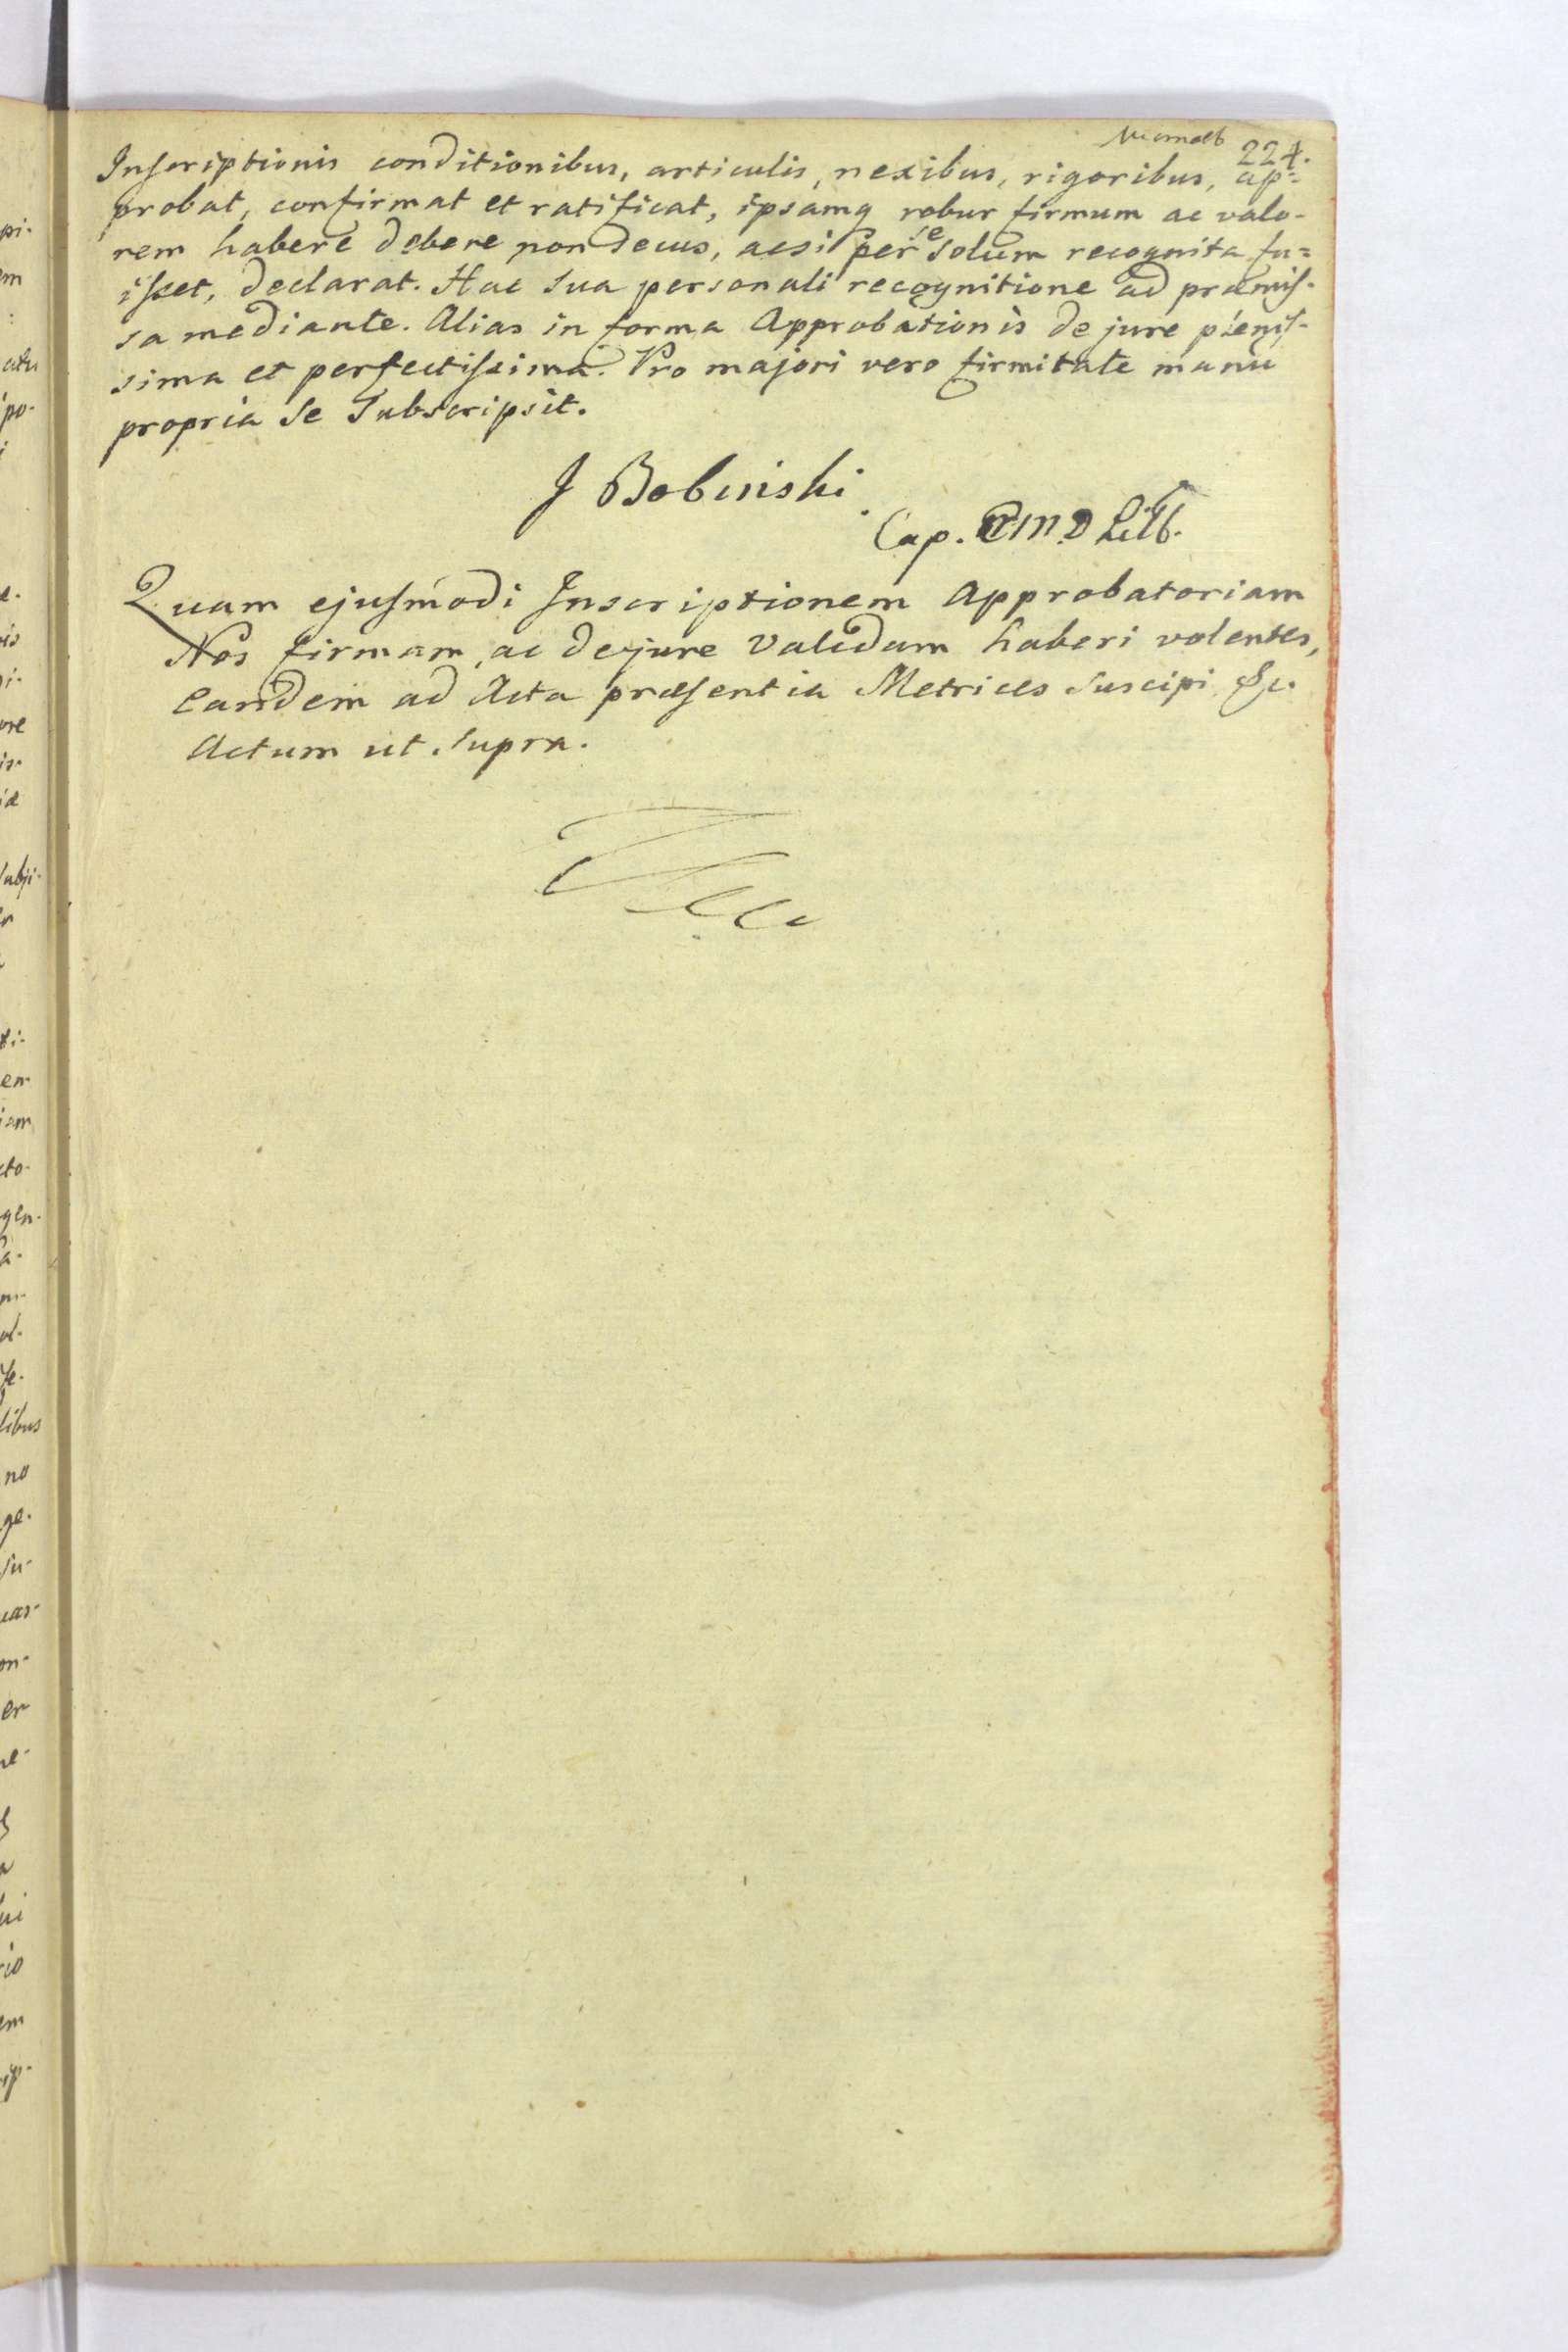 224.
Inscriptionis conditionibus, articulis, nexibus, rigoribus, ap=
probat, confirmat et ratificat, ipsamq robur firmum ac valo-
rem habere debere non secus, acsi per se solum recognita fu=
isset, declarat. Hac sua personali recognitione ad præmis-
sa mediante. Alias in forma Approbationis de jure plenis-
sima et perfectissima. Pro majori vero firmitate manu
propria se subscripsit.
J Bobinski
Cap. Litt.
Quam ejusmodi Inscriptionem Approbatoriam
Nos firmam, ac de jure validam haberi volentes,
Eandem ad Acta præsentia Metrices suscipi &c.
Actum ut supra.